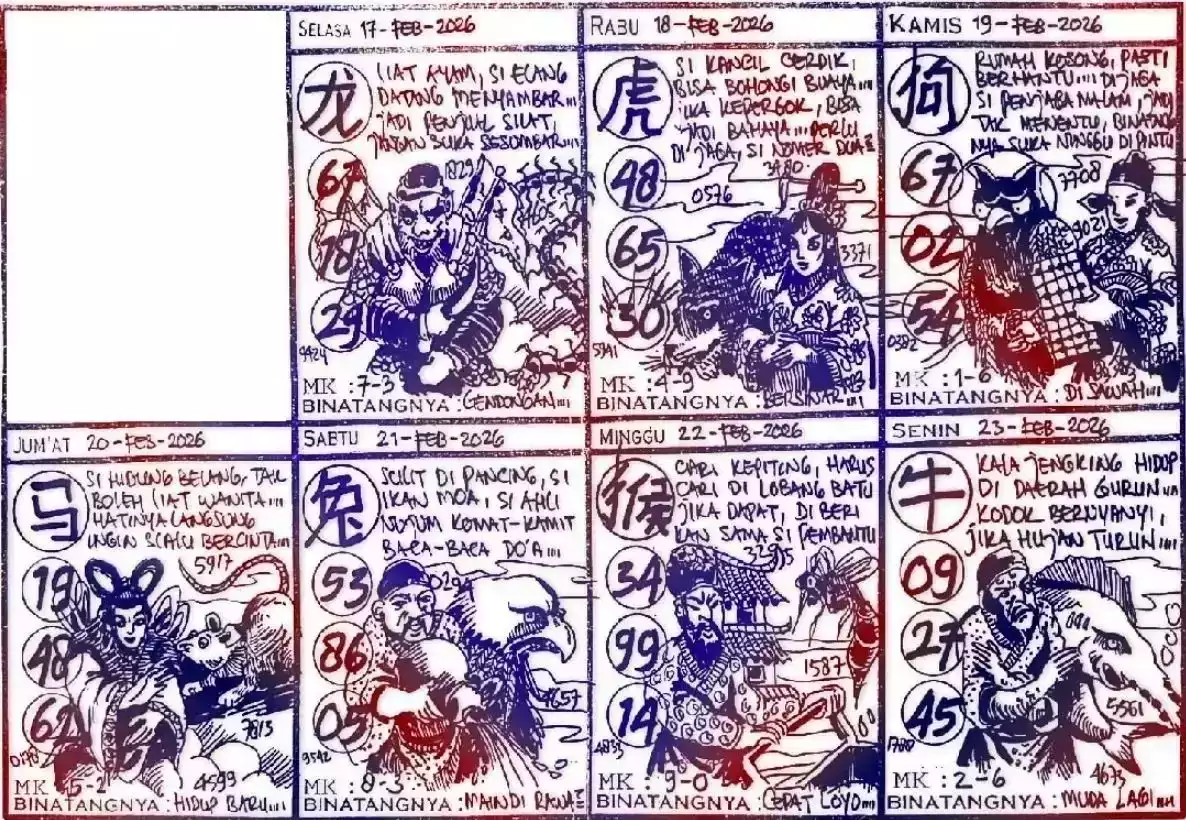 SELASA 17-FEB-2026
龙
LIAT AYAM, SI ELANG
DATANG MENYAMBAR....
JADI PENJUAL SILAT,
JANGAN SUKA SESUMBAR....
1829
67
18
29
9424
MK : 7-3
BINATANGNYA : GENDONGAN....
RABU 18-FEB-2026
虎
SI KANCIL CERDIK,
BISA BOHONGI BUAYA....
JIKA KEPERGOK, BISA
JADI BAHAYA.... PERLU
DI JAGA, SI NOMER DUA
3480
0576
48
65
3371
30
5941
MK : 4-9
BINATANGNYA : BERSINAR....
KAMIS 19-FEB-2026
狗
RUMAH KOSONG, PASTI
BERHANTU.... DI JAGA
SI PENJAGA MALAM, JADI
TAK MENENTU, BINATANG
NYA SUKA NUNGGU DI PINTU
7708
67
9021
02
54
0382
MK : 1-6
BINATANGNYA : DI SAWAH....
JUM'AT 20-FEB-2026
马
SI HIDUNG BELANG, TAK
BOLEH LIAT WANITA....
HATINYA LANGSUNG
INGIN SLALU BERCINTA....
5917
19
48
62
7813
4599
MK : 5-2
BINATANGNYA : HIDUP BARU....
SABTU 21-FEB-2026
兔
SULIT DI PANCING, SI
IKAN MOA, SI AHLI
NUJUM KOMAT-KAMIT
BACA-BACA DO'A....
53
86
4657
05
9542
MK : 8-3
BINATANGNYA : MAIN DI RAWA
MINGGU 22-FEB-2026
猴
CARI KEPITING, HARUS
CARI DI LOBANG BATU
JIKA DAPAT, DI BERI
KAN SAMA SI PEMBANTU
34
99
1587
14
4833
MK : 9-0
BINATANGNYA : CEPAT LOYO....
SENIN 23-FEB-2026
牛
KALA JENGKING HIDUP
DI DAERAH GURUN....
KODOK BERNYANYI,
JIKA HUJAN TURUN....
09
27
45
5561
1788
4673
MK : 2-6
BINATANGNYA : MUDA LAGI....